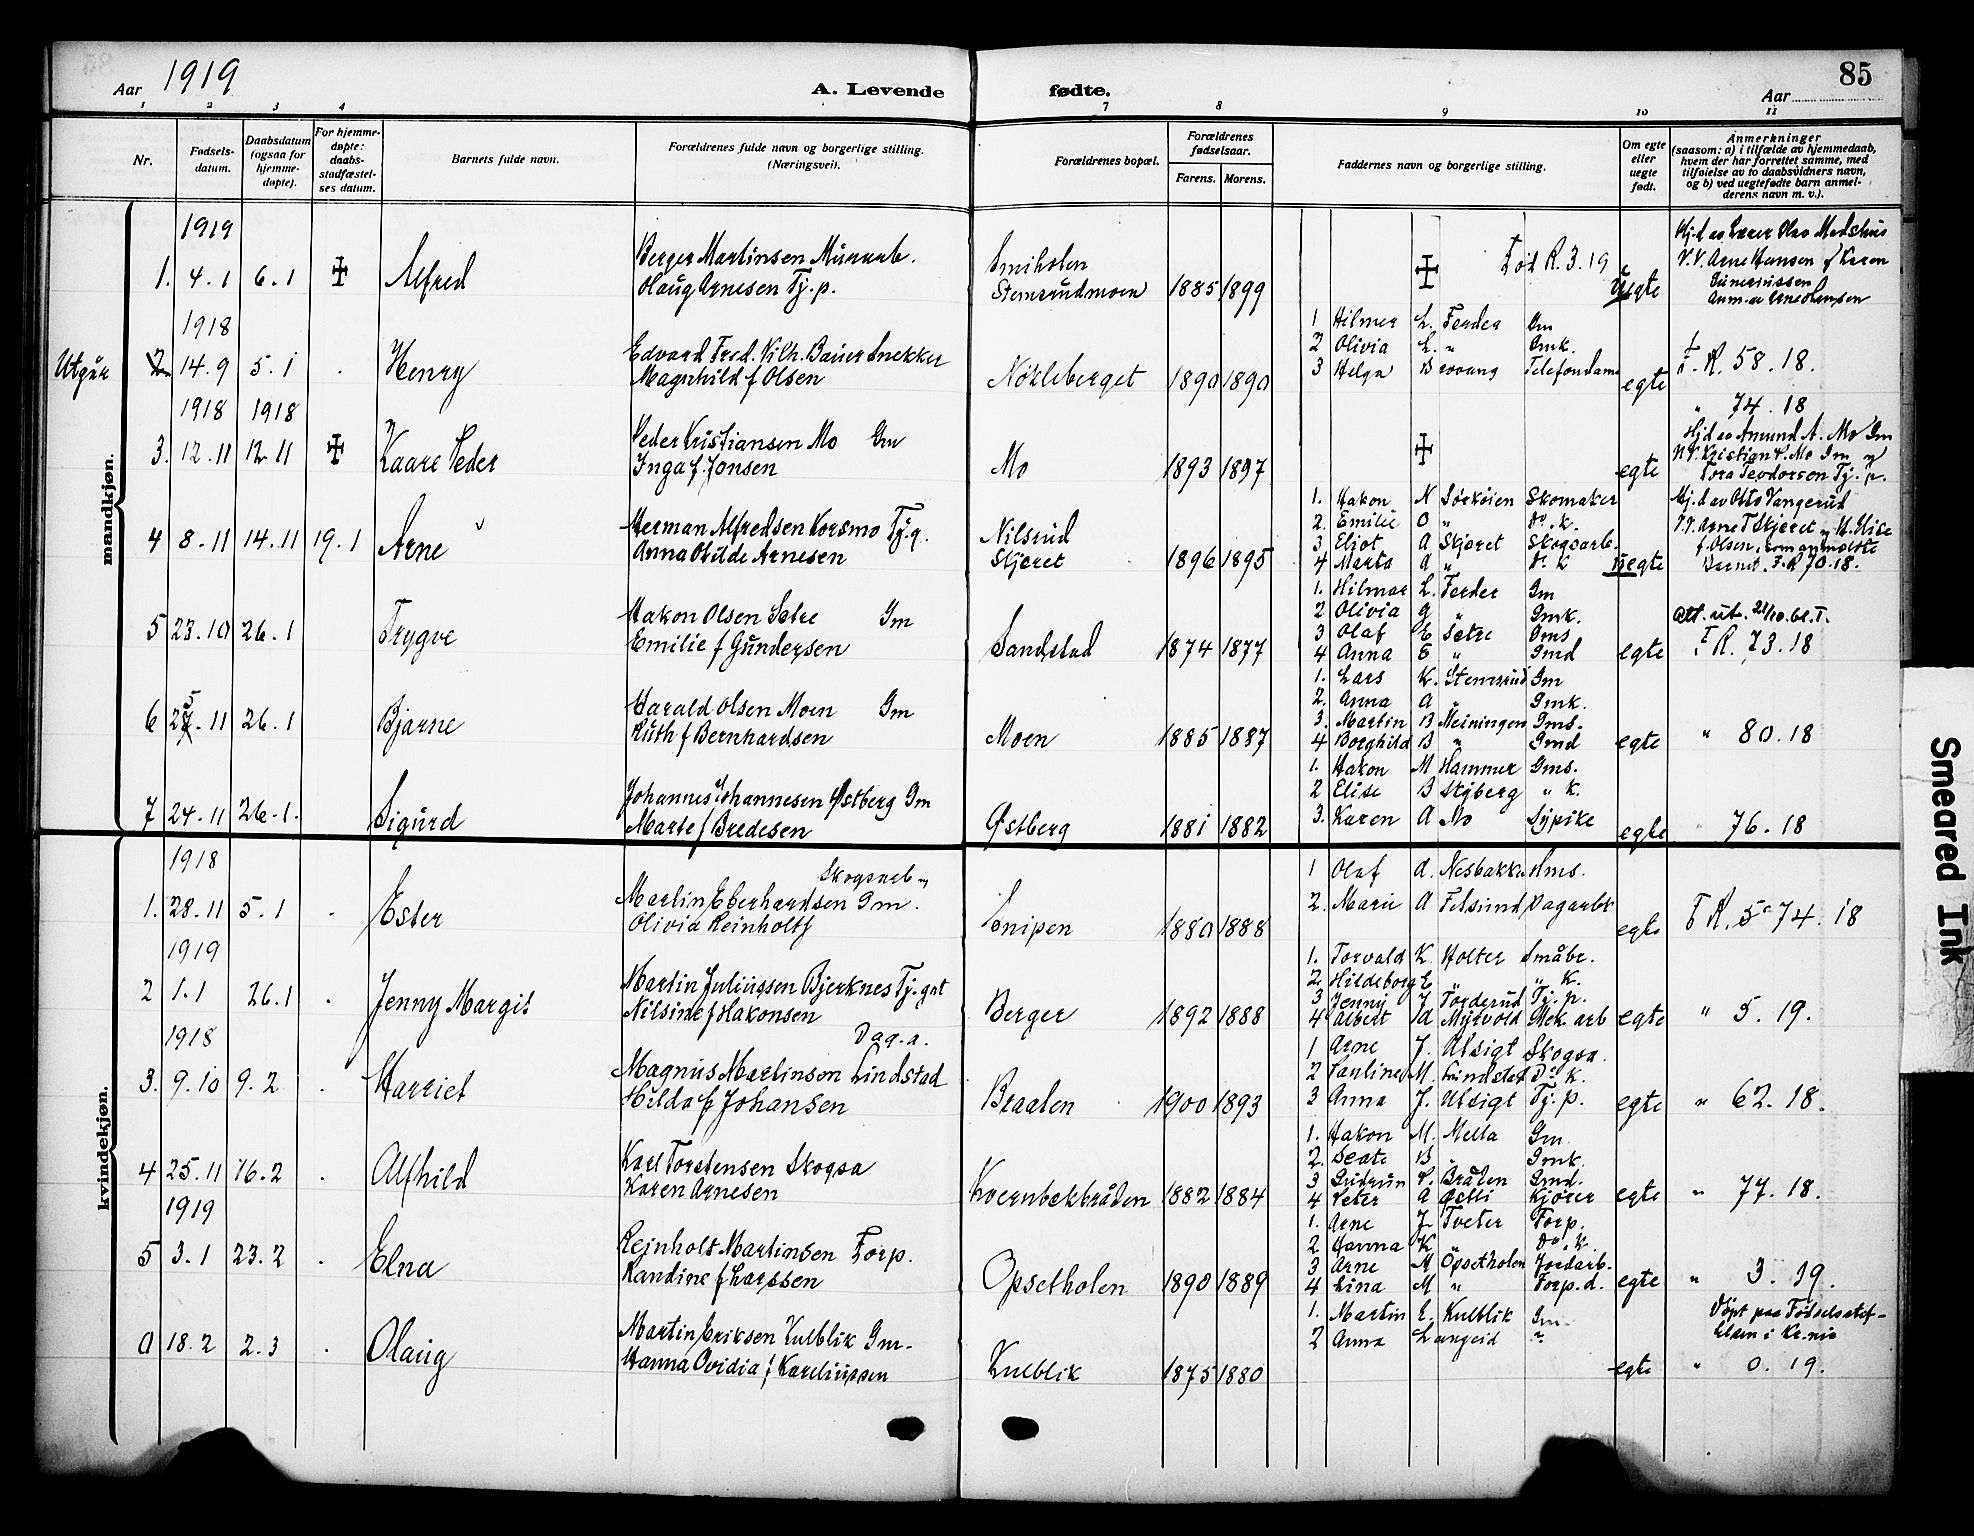 Aar 1919
A. Levende fødte.
Aar
85
1 2 3 4
7 8 9 10 11
Nr.
Fødselsdatum.
Daabsdatum (ogsaa for hjemmedøpte).
For hjemmedøpte: daabsstadfæstelses datum.
Barnets fulde navn.
Forældrenes fulde navn og borgerlige stilling. (Næringsvei).
Forældrenes bopæl.
Forældrenes fødselsaar.
Farens. Morens.
Faddernes navn og borgerlige stilling.
Om egte eller uegte født.
Anmerkninger (saasom: a) i tilfælde av hjemmedaab, hvem der har forrettet samme, med tilføielse av to daabsvidners navn, og b) ved uegtefødte barn anmelderens navn m. v.).
mandkjøn.
1919
1. 4.1 6.1 Alfred
Berger Martinsen
Olaug Arnesen Tj.p.
Stemsrudmoen 1885 1899
R. 3.19
Uegte
Hj.d av Lærer Olav
V.V. Arne Hansen
1918
Utgår 2 14.9 5.1 Henry
Edvard Fred. Vilh. Bauer Snekker
Magnhild f Olsen
Nökleberget 1890 1890
1 Hilmer L. Ferder Gm
2 Olivia L. " Gmk.
3 Helga Brovang Telefondame
egte
F.R. 58.18.
1918 1918
3. 12.11 12.11 Kaare Peder
Peder Kristiansen Mo Gm
Inga f. Jonsen
Mo 1893 1897
egte
" 74.18
Hj.d av Amund A. Mo Gm
V.V. Kristian P. Mo Gm og
Tora Teodorsen Tj.p.
4 8.11 14.11 19.1 Arne
Herman Alfredsen Korsmo Tj.g.
Anna Otilde Arnesen
Nilsrud
Skjæret 1896 1895
1. Hakon N Skomaker
2. Emilie O " Do. k.
3. Eliot A Skjæret Skogsarb.
4 Marta A "
uegte
Hj.d av Otto Vangerud
V.V. Arne T Skjæret
f. Olsen, som anmeldte
Barnet. F.R 70.18.
5 23.10 26.1 Trygve
Hakon Olsen Sætre Gm
Emilie f Gundersen
Sandstad 1874 1877
1. Hilmar L. Ferder Gm
2 Olivia G " Gmk.
3 Olaf E Sætre Gms
4 Anna E " Gmd
egte
Att. ut.
F R. 73.18
6 25.11 26.1 Bjarne
Harald Olsen Moen Gm
Ruth f Bernhardsen
Moen 1885 1887
1. Lars K. Stemsrud Gm
2. Anna A " Gmk.
3. Martin B Meiningen Gms.
4 Borghild B " Gmd
egte
" 80.18
7 24.11 26.1. Sigurd
Johannes Johannesen Østberg Gm
Marte f Bredesen
Østberg 1881 1882
1. Hakon M Hammer Gms.
2 Elise B Styberg " K.
3. Karen A Mo Sypike
egte
" 76.18
kvindekjøn.
1918
1. 28.11 5.1 Ester
Martin Eberhardsen Gm.
Olivia Reinholts
Snipen 1880 1888
1 Olaf A. Nesbakken
2. Marie A Dagarb
egte
F R. 74.18
1919
2 1.1 26.1 Jenny Margit
Martin Juliussen Bjerknes Tj.gut
Nilsine f Hakonsen
Berger 1892 1888
1. Torvald K. Holter Småbr.
2. Hildeborg E " K.
3 Jenny J Torderud Tj.p.
4 Albert M Myrvold Mek. arb
egte
" 5.19.
1918
Dag.a.
3. 9.10 9.2 Harriet
Magnus Martinsen Lindstad
Hilda f Johansen
Braaten 1900 1893
1 Arne J. Utsigt Skogsa.
2 Pauline M. Lundstad
3 Anna J. Utsigt Tj.p.
egte
" 62.18.
4 25.11 16.2 Alfhild
Karl Torstensen Skogsa
Karen Arnesen
Kvernbekbråten 1882 1884
1. Hakon M. Mella Gm
2. Beate B " Gmk.
3 Gudrun P. Bråten Gmd.
4 Peter A Kjører
egte
" 77.18.
1919
5 3.1 23.2 Elna
Reinholt Martinsen Torp.
Randine f Larssen
Opsetholen 1890 1889
1. Arne J. Tveter Torp.
2 Hanna K " Do. k.
3 Arne M Opsetholen Jordarb.
4 Lina M " Torp.d.
egte
" 3.19.
0 18.2 2.3 Olaug
Martin Eriksen Kulblik Gm.
Hanna Ovidia f Kareliussen
Kulblik 1875 1880
1. Martin E. Kulblik Gm
2 Anna Langeid "
egte
Döpt paa Födselsstiftelsen i Kr.nia
" 0.19.
Smeared Ink